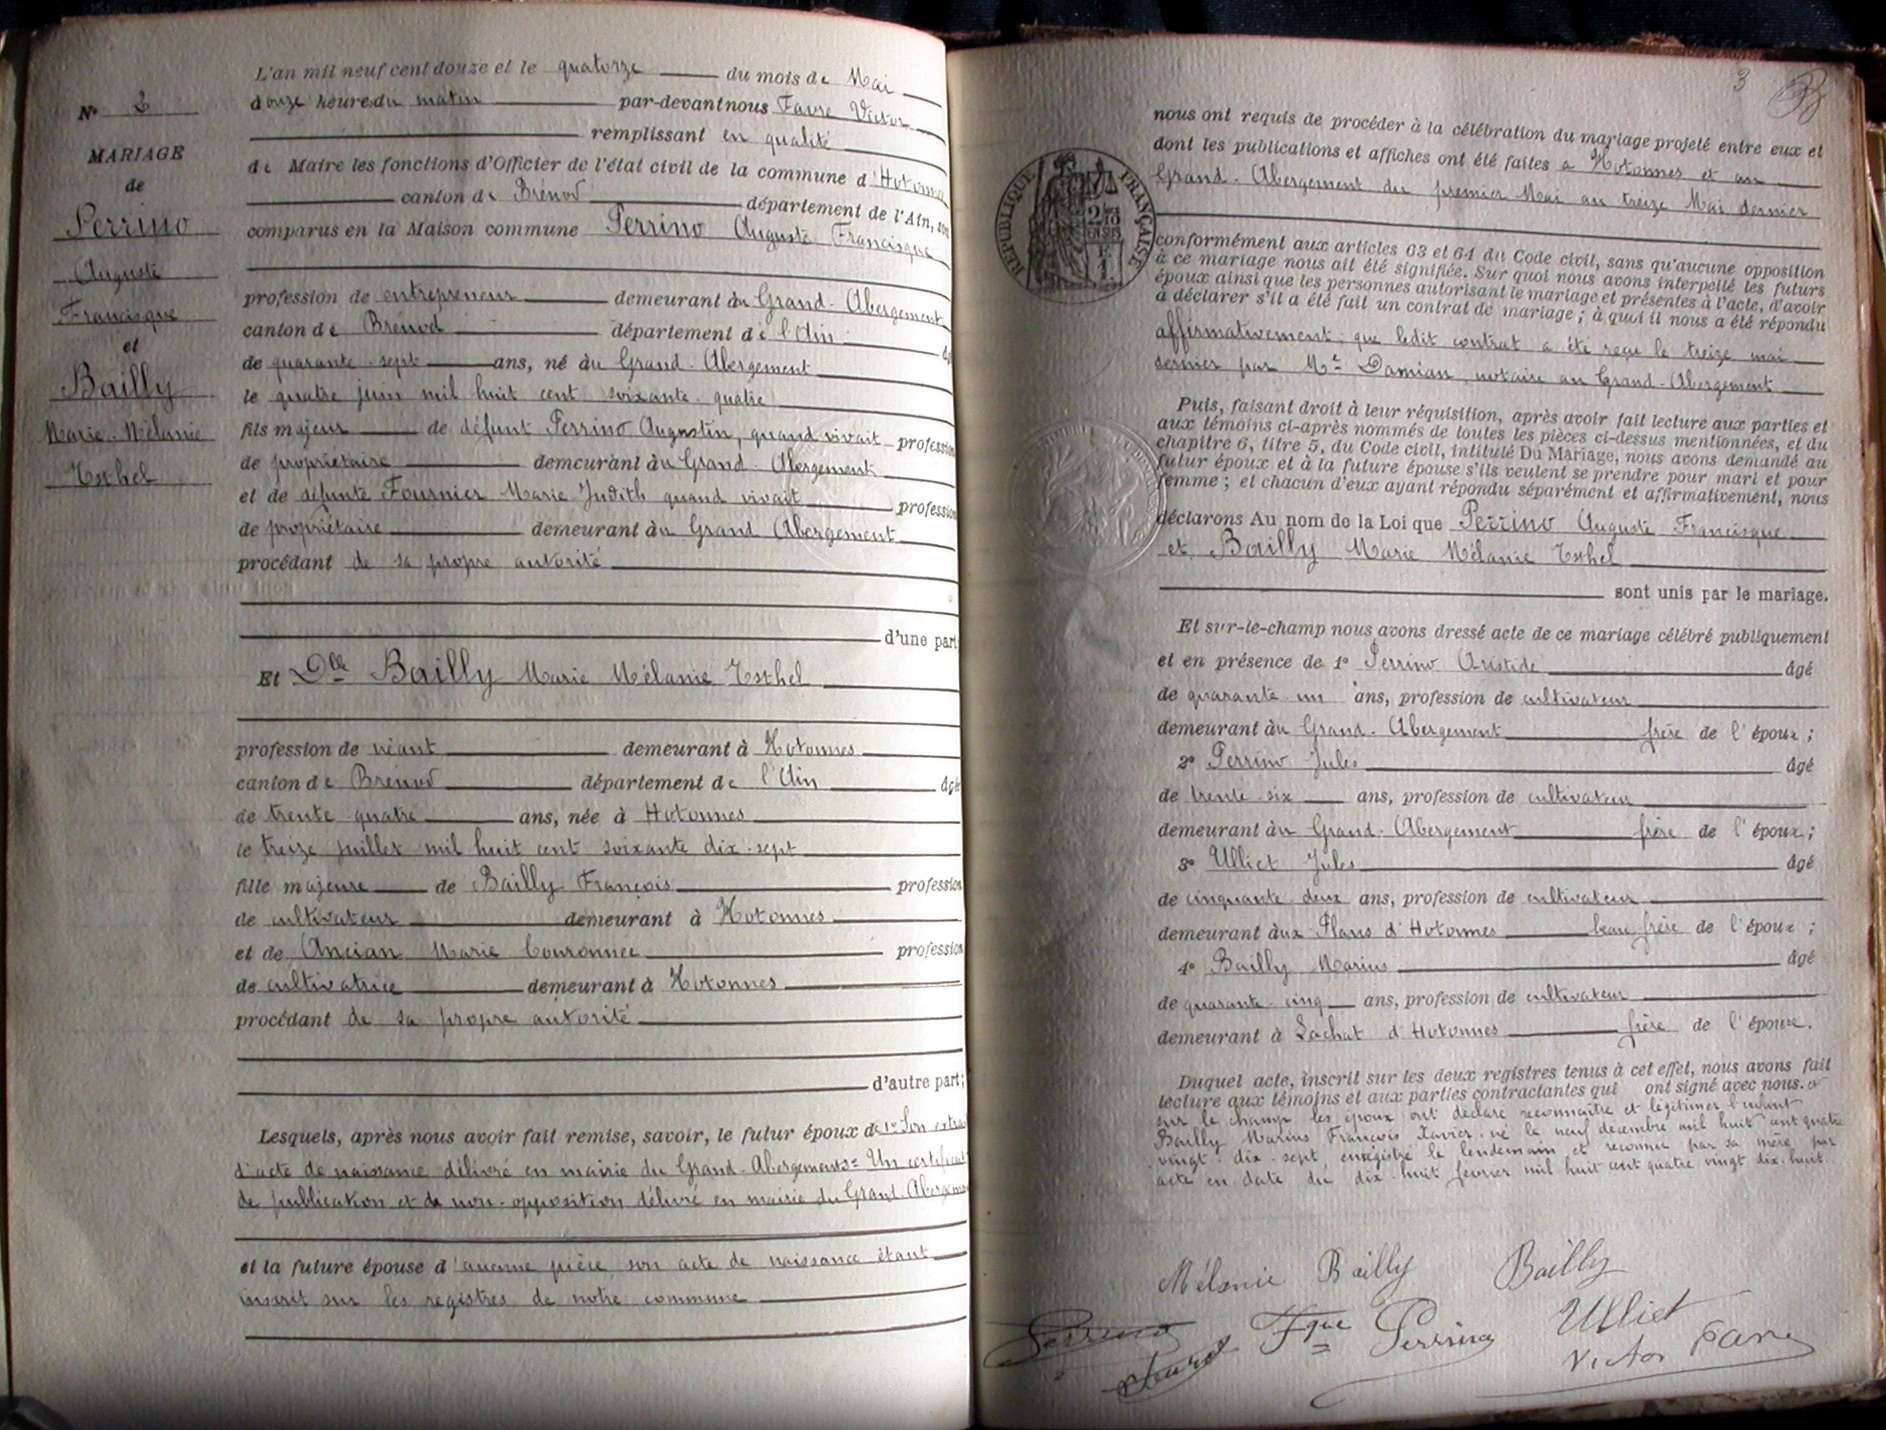 L'an mil neuf cent douze et le quatorze du mois de Mai
douze heure du matin par-devant nous Favre Victor
remplissant en qualité
de Maire les fonctions d'Officier de l'état civil de la commune d'Hotonnes
canton de Brénod département de l'Ain, sont
comparus en la Maison commune Perrino Auguste Francisque
profession de entrepreneur demeurant au Grand-Abergement
canton de Brénod département de l'Ain âgé
de quarante-sept ans, né au Grand-Abergement
le quatre juin mil huit cent soixante-quatre
fils majeur de défunt Perrino Augustin, quand vivait profession
de propriétaire demeurant au Grand-Abergement
et de défunte Fournier Marie Judith quand vivait profession
de propriétaire demeurant au Grand Abergement
procédant de sa propre autorité
d'une part
Et Dlle Bailly Marie Mélanie Esthel
profession de néant demeurant à Hotonnes
canton de Brénod département de l'Ain âgée
de trente quatre ans, née à Hotonnes
le treize juillet mil huit cent soixante dix-sept
fille majeure de Bailly François profession
de cultivateur demeurant à Hotonnes
et de Ancian Marie Couronnée profession
de cultivatrice demeurant à Hotonnes
procédant de sa propre autorité
d'autre part;
Lesquels, après nous avoir fait remise, savoir, le futur époux de 1º Son extrait
d'acte de naissance délivré en mairie du Grand-Abergement 2º Un certificat
de publication et de non-opposition délivré en mairie du Grand-Abergement
et la future épouse d'aucune pièce son acte de naissance étant
inscrit sur les registres de notre commune
Nº 2
MARIAGE
de
Perrino
Auguste
Francisque
et
Bailly
Marie-Mélanie
Esthel
3
nous ont requis de procéder à la célébration du mariage projeté entre eux et
dont les publications et affiches ont été faites à Hotonnes et au
Grand-Abergement du premier Mai au treize Mai dernier
RÉPUBLIQUE FRANÇAISE
conformément aux articles 63 et 64 du Code civil, sans qu'aucune opposition
à ce mariage nous ait été signifiée. Sur quoi nous avons interpellé les futurs
époux ainsi que les personnes autorisant le mariage et présentes à l'acte, d'avoir
à déclarer s'il a été fait un contrat de mariage; à quoi il nous a été répondu
affirmativement, que ledit contrat a été reçu le treize mai
dernier par Me Damian, notaire au Grand-Abergement
Puis, faisant droit à leur réquisition, après avoir fait lecture aux parties et
aux témoins ci-après nommés de toutes les pièces ci-dessus mentionnées, et du
chapitre 6, titre 5, du Code civil, intitulé Du Mariage, nous avons demandé au
futur époux et à la future épouse s'ils veulent se prendre pour mari et pour
femme; et chacun d'eux ayant répondu séparément et affirmativement, nous
déclarons Au nom de la Loi que Perrino Auguste Francisque
et Bailly Marie Mélanie Esthel
sont unis par le mariage.
Et sur-le-champ nous avons dressé acte de ce mariage célébré publiquement
et en présence de 1º Perrino Aristide âgé
de quarante-un ans, profession de cultivateur
demeurant au Grand-Abergement frère de l'époux;
2º Perrino Jules âgé
de trente-six ans, profession de cultivateur
demeurant au Grand-Abergement frère de l'époux;
3º Ulliet Jules âgé
de cinquante deux ans, profession de cultivateur
demeurant aux Plans d'Hotonnes beau frère de l'époux;
4º Bailly Marius âgé
de quarante-cinq ans, profession de cultivateur
demeurant à Lachat d'Hotonnes frère de l'épouse.
Duquel acte, inscrit sur les deux registres tenus à cet effet, nous avons fait
lecture aux témoins et aux parties contractantes qui ont signé avec nous. et
sur le champ les époux ont déclaré reconnaître et légitimer l'enfant
Bailly Marius François Xavier né le neuf décembre mil huit cent quatre
vingt-dix-sept enregistré le lendemain et reconnu par sa mère par
acte en date du dix-huit février mil huit cent quatre vingt dix-huit.
Mélanie Bailly Bailly
Perrino Fque Perrino Ulliet
Victor Favre